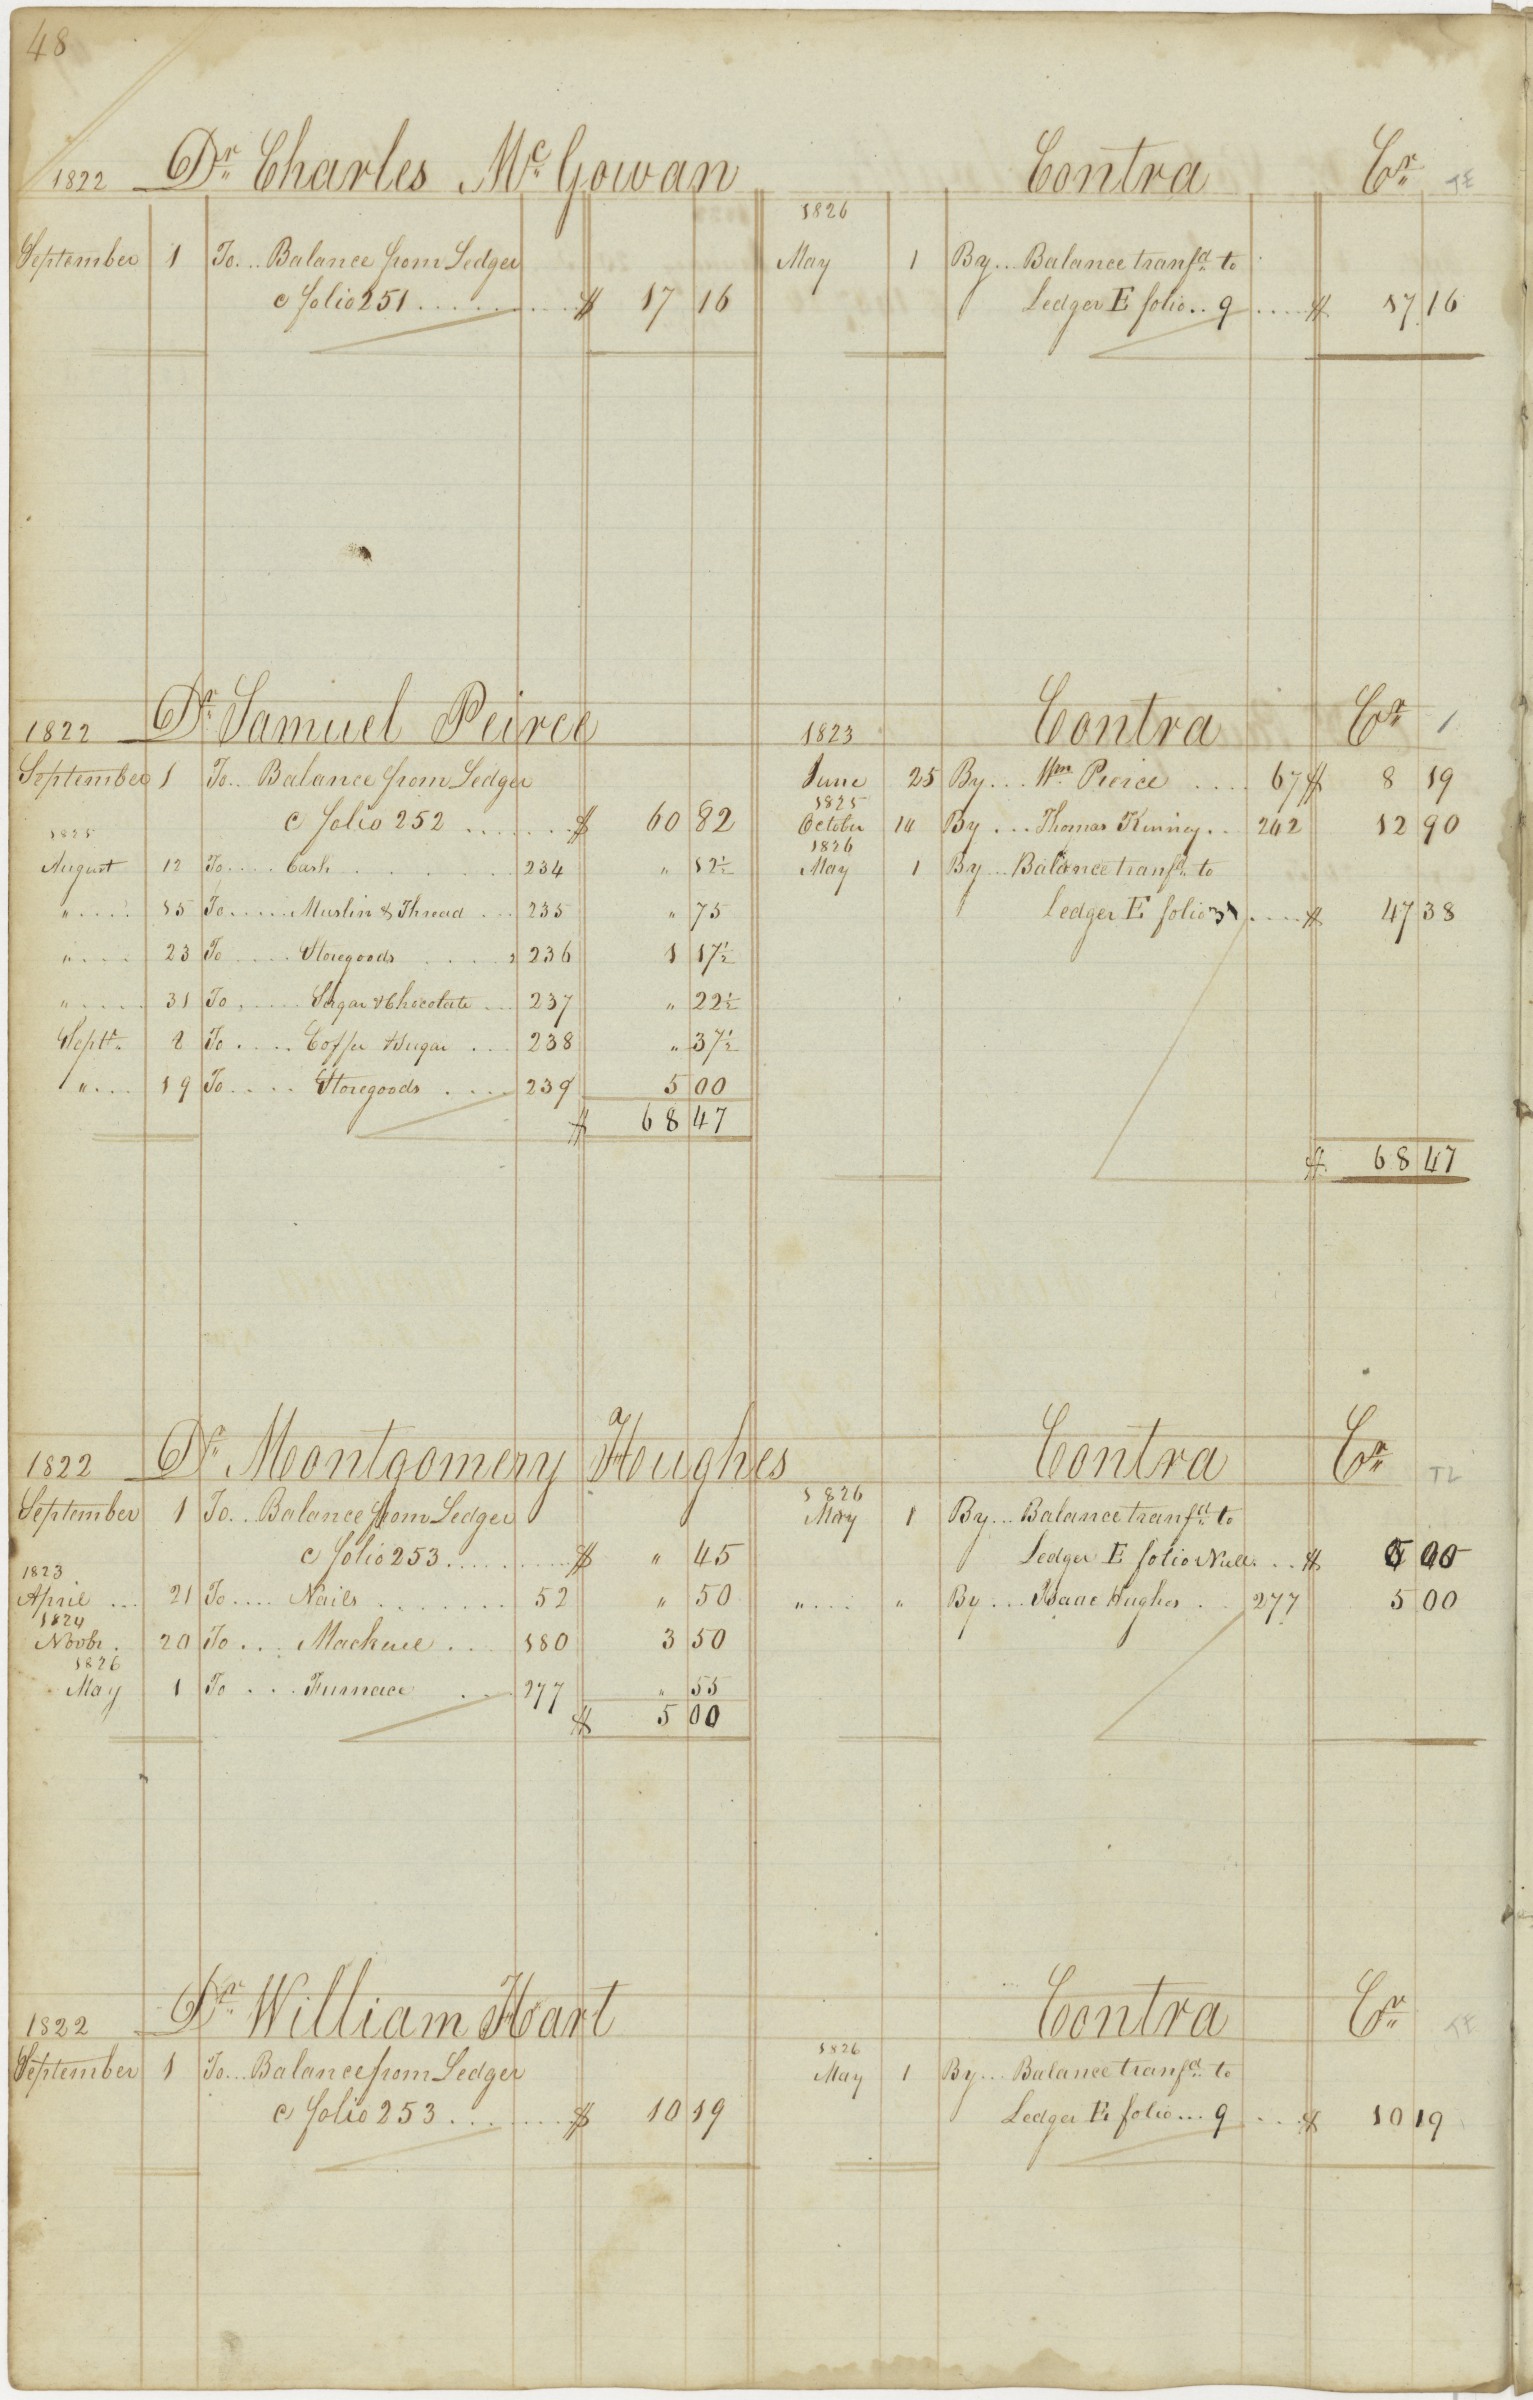 48
1822 Dr Charles McGowan Contra Cr
1826
September 1 To... Balance from Ledger May 1 By... Balance tranfd to
C folio 251 ........ $ 17 16 Ledger E folio.. 9 .... $ 17 16
1822 Dr Samuel Peirce 1823 Contra Cr
September 1 To.. Balance from Ledger June 25 By... Wm Pierce .... 67 $ 8 19
C folio 252 ....... $ 60 82 1825 October 10 By ... Thomas Kinney.. 242 12 90
1825 1826
August 12 To.... Cash ....... 234 " 12½ May 1 By... Balance tranfd to
".... 15 To..... Muslin & Thread ... 235 " 75 Ledger E folio 31 .... $ 47 38
".... 23 To .... Storegoods .... 236 1 17½
".... 31 To .... Sugar & Chocolate ... 237 " 22½
Septr 2 To .... Coffee & Sugar ... 238 " 37½
"... 19 To.... Storegoods .... 239 5 00
$ 68 47
$ 68 47
1822 Dr Montgomery Houghes Contra Cr
1826
September 1 To... Balance from Ledger May 1 By... Balance tranfd to
C folio 253 ........ $ " 45 Ledger E folio Null... $
1823
April ... 21 To.... Nails ....... 52 " 50 ".... " By ... Isaac Hughes .. 277 5 00
1824
Novbr. 20 To ... Mackerel ... 180 3 50
1826
May 1 To ... Furnace ... 277 " 55
$ 5 00
1822 Dr William Hart Contra Cr
1826
September 1 To... Balance from Ledger May 1 By... Balance tranfd to
C folio 253 ....... $ 10 19 Ledger E folio... 9 .... $ 10 19